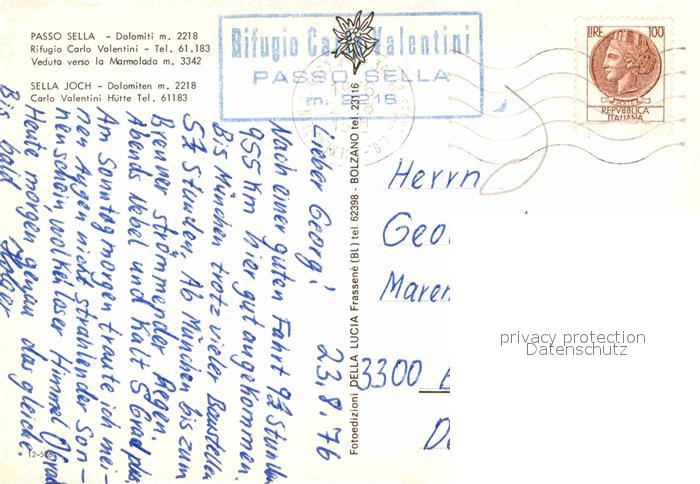 PASSO SELLA - Dolomiti m. 2218
Rifugio Carlo Valentini - Tel. 61.183
Veduta verso la Marmolada m. 3342
SELLA JOCH - Dolomiten m. 2218
Carlo Valentini Hütte Tel. 61183
Rifugio Carlo Valentini
PASSO SELLA
m. 2218
LIRE 100
REPVBBLICA
ITALIANA
Fotoedizioni DELLA LUCIA Frassenè (BL) tel. 62398 - BOLZANO tel. 23116
23.8.76
Lieber Georg!
Nach einer guten Fahrt 9½ Stunden
955 km hier gut angekommen.
Bis München trotz vieler Baustellen
5¾ Stunden. Ab München bis zum
Brenner strömmender Regen.
Abends Nebel und Kalt 5 Grad plus.
Am Sonntagmorgen traute ich mei-
nen Augen nicht strahlender Son-
nenschein, wolkenloser Himmel 0 Grad
Heute morgen genau das gleiche.
Bis bald
Holger
Herrn
Geo
Maren
3300
privacy protection
Datenschutz